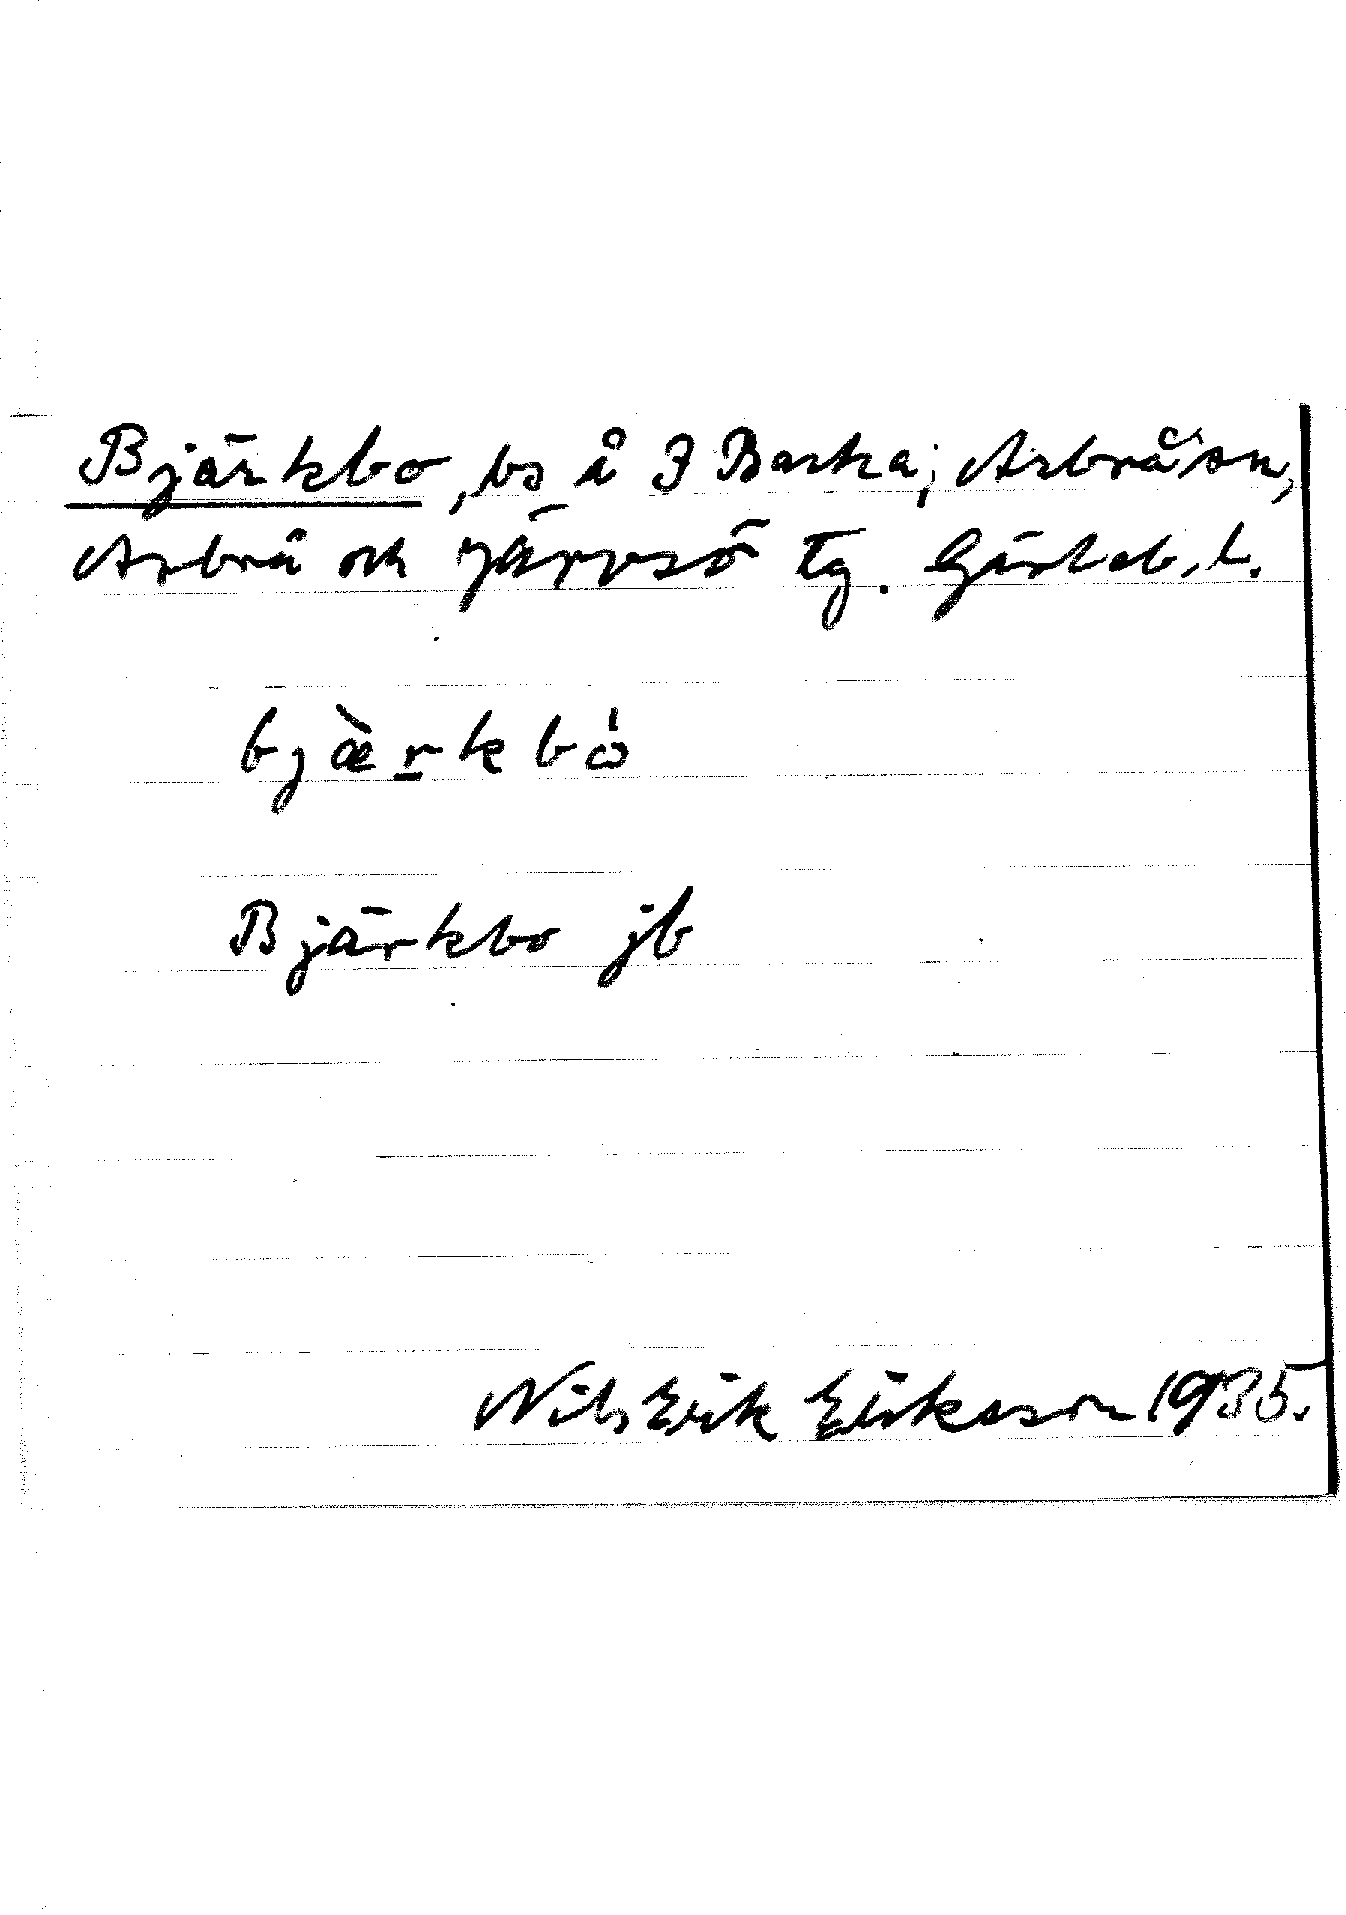 Bjärkbo, bs å 7 Barka; Arbrå sn,
Arbrå och Järvsö tg. Gävleb. l.
bjæ̀rkbó
Bjärkbo jb
Nils Erik Eriksson 1935.